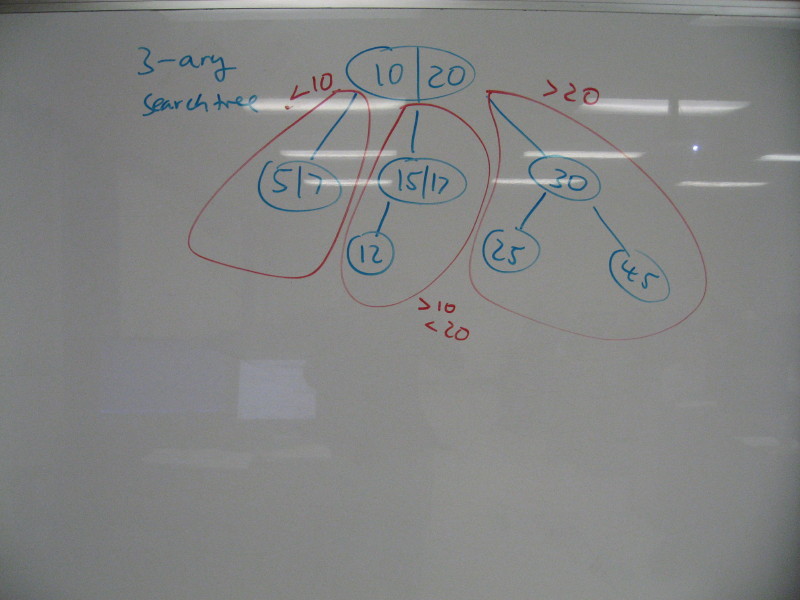 3-ary
search tree
10 | 20
<10
>20
5|7
15|17
30
12
25
45
>10
<20